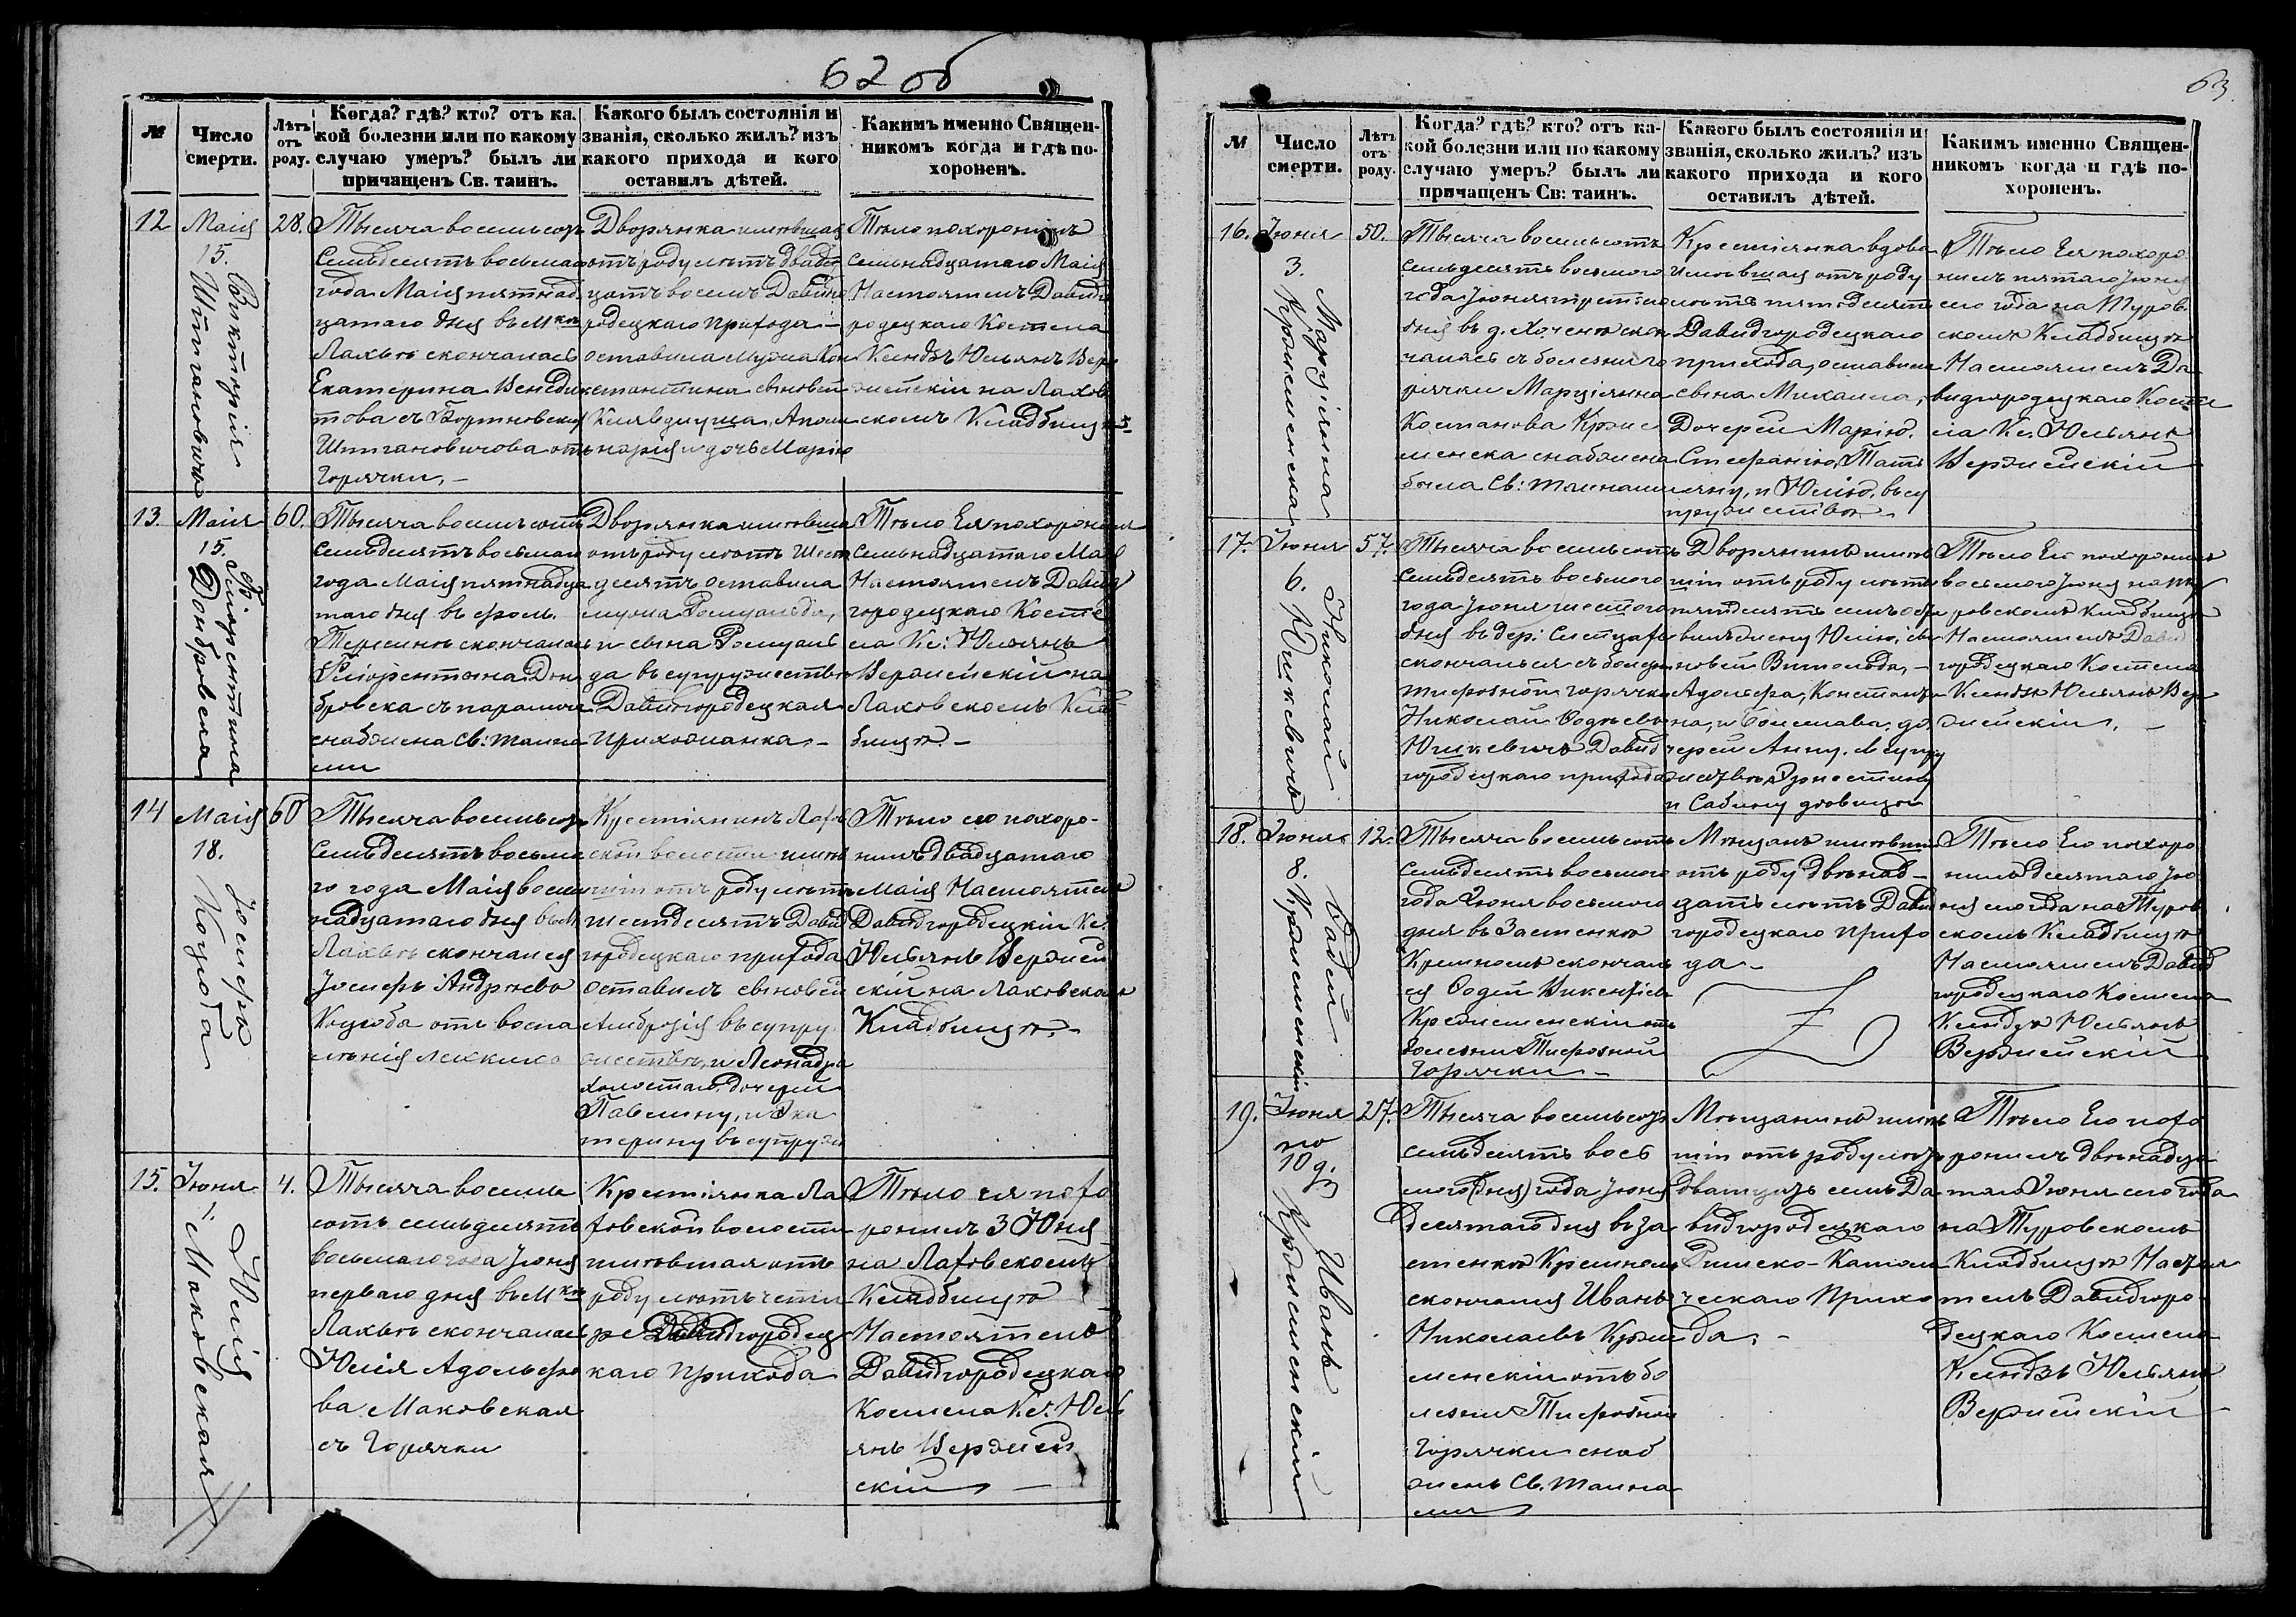 62 об
№
Число
смерти.
Лѣтъ
отъ
роду.
Когда? гдѣ? кто? отъ ка-
кой болезни или по какому
случаю умеръ? былъ ли
причащенъ Св. таинъ.
Какого былъ состоянія и
званія, сколько жилъ? изъ
какого прихода и кого
оставилъ дѣтей.
Каким именно Священ-
никомъ когда и гдѣ по-
хороненъ.
12
Маія
15.
Викторія
28.
Тысяча восемьсотъ
семьдесятъ восьмаго
года Маія пятнад
цатаго дня въ Мкѣ
Лахвѣ скончалась
Екатерина Венедик
това съ Бортновских
горячки.
Дворянка имѣвшая
отъ роду лѣтъ двад
цать восемь Давидго
родецкаго прихода
оставила мужа Кон
стантина сыновей
нарія и дочь Марію
Тѣло похоронилъ
семьнадцатаго Маія
Настоятель Давидго
родецкаго Костела
Ксендзъ Юльянъ Вер
жейскій на Лахов
скомъ Кладбищѣ
13.
Маія
15.
Флiорентина
Донбровска
60.
Тысяча восемьсотъ
семьдесятъ восьмаго
года Маія пятнадца
таго дня въ фоль.
скончалась
Флiорентина Дон
бровска съ
снабжена Св: Таина
ми
Дворянка имѣвша
отъ роду лѣтъ шесть
десятъ оставила
мужа Ромуальда,
и сына Ромуаль
да въ супружествѣ
Давидгородецкая
прихожанка. –
Тѣло Ея похоронилъ
семьнадцатаго Маія
Настоятель Давид
городецкаго Косте
ла Кс: Юльянъ
Вержейскій на
Лаховскомъ Клад
бищѣ. –
14
Маія
18.
Іосифъ
Коцюба
60
Тысяча восемьсотъ
семьдесятъ восьма
го года Маія восем
надцатаго дня въ М
Лахвѣ скончался
Іосифъ Андреевъ
Коцюба отъ воспа
ленія легкихъ
Крестіянинъ Лахов
ской волости имѣв
шій отъ роду лѣтъ
шестдесятъ Давид
городецкаго прихода
оставилъ сыновей
Амброзія въ супру
жествѣ, и Леонарда
холостаго, дочерей
Павлину, и Ека
терину въ супруж
Тѣло его похоро-
нилъ двадцатаго
Маія Настоятель
Давидгородецкій Кс.
Юльянъ Вержей
скій на Лаховскомъ
Кладбищѣ. –
15.
Іюня
1.
Юлія
Маковская
4.
Тысяча восемь
сотъ семьдесятъ
восьмаго года Іюня
перваго дня въ Мкѣ
Лахвѣ скончалась
Юлія Адольфо
ва Маковская
съ горячки
Крестіянка Ла
ховской волости
имѣвшая отъ
роду лѣтъ четы
ре Давидгородец
каго прихода
Тѣло ея похо
ронилъ 3 Юня
на Лаховскомъ
Кладбищѣ
Настоятель
Давидгородецкаго
Костела Кс. Юль
янъ Вержей
скій –
63.
№
Число
смерти.
Лѣтъ
отъ
роду.
Когда? гдѣ? кто? отъ ка-
кой болезни или по какому
случаю умеръ? былъ ли
причащенъ Св: таинъ.
Какого былъ состоянія и
званія, сколько жилъ? изъ
какого прихода и кого
оставилъ дѣтей.
Каким именно Священ-
никомъ когда и гдѣ по-
хороненъ.
16.
Іюня
3.
Марціянна
Кржеменска
50.
Тысяча восемьсотъ
семьдесятъ восьмого
года Іюня третьяго
дня въ д. Хоченѣ скон
чалась съ болезни го
рячки Марціянна
Кржe
менска снабжена
была Св: Таинами
Крестіянка вдова
имѣвшая отъ роду
лѣтъ пятдесятъ
Давидгородецкаго
прихода, оставила
сына Михаила,
Дочерей Марію.
Стефанію, Тать
яну, и Юлію, въ су
пружествѣ
Тѣло Ея похоро
нилъ пятаго Іюня
сего года на Туров
скомъ Кладбищѣ
Настоятель Да
видгородецкаго Косте
ла Кс. Юльянъ
Вержейскій
17.
Іюня
6.
Николай
Юшкевичъ
57.
Тысяча восемьсотъ
семьдесятъ восьмого
года Іюня шестого
дня въ дер:
скончался съ болезни
тифозной горячки
Николай
Юшкевичъ Давид
городецкаго прихода
Дворянинъ имѣв
шій отъ роду лѣтъ
пятдесятъ семь оста
вилъ жену Юлію, сы
новей Витольда, –
Адольфа, Констант
на, и Болеслава, до
черей Анну, въ супру
жествѣ, Эрнестину
и Сабину дѣвицы
Тѣло Его похоронилъ
восьмого Іюня на Ту
ровскомъ кладбищѣ
Настоятель Давид
городецкаго Костела
Ксендзъ Юльянъ Вер
жейскій. –
18.
Іюня
8.
Фадей
Кржеменскій
12.
Тысяча восемьсотъ
семьдесятъ восьмого
года Іюня восьмого
дня въ Застенкѣ
Кремномъ скончал
ся Фадей Викентіев
Кржеменскій отъ
болезни Тифозной
горячки –
Мѣщанъ имѣвшій
отъ роду двѣнад-
цать лѣтъ Давид
городецкаго прихо
да –
Тѣло Его похоро
нилъ десятаго Ію
ня сего года на Туров
скомъ Кладбищѣ
Настоятель Давид
городецкаго Костела
Ксендзъ Юльянъ
Вержейскій
19.
Іюня
10 д.
Иванъ
Кржеменскій
27.
Тысяча восемьсотъ
семьдесятъ вось
мого (дня) года Іюня
десятаго дня въ За
стенкѣ Кремномъ
скончался Иванъ
Николаевъ Крже
менскій отъ бо
лезни Тифозной
горячки снаб
женъ Св. Таина
ми
Мѣщанинъ имѣв
шій отъ роду лѣтъ
двадцать семь Да
видгородецкаго
Римско-Катол
ческаго Прихо
да. –
Тѣло Его похо
ронилъ двѣнадца
таго Іюня сего года
на Туровскомъ
Кладбищѣ Настоя
тель Давидгоро-
децкаго Костела
Ксендзъ Юльянъ
Вержейскій –